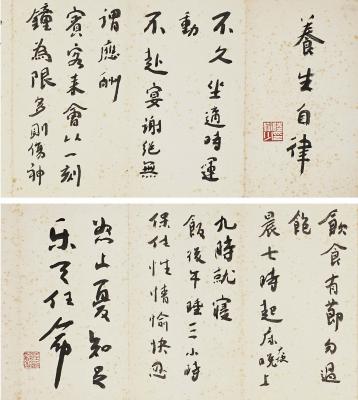 養生自律
不久坐適時運
動
不赴宴謝絕無
謂應酬
賓客來會以一刻
鐘為限多則傷神
飲食有節勿過
飽
晨七時起床晚上
九時就寢
飯後午睡三小時
保任性情愉快忍
怒止憂知足
樂天任命